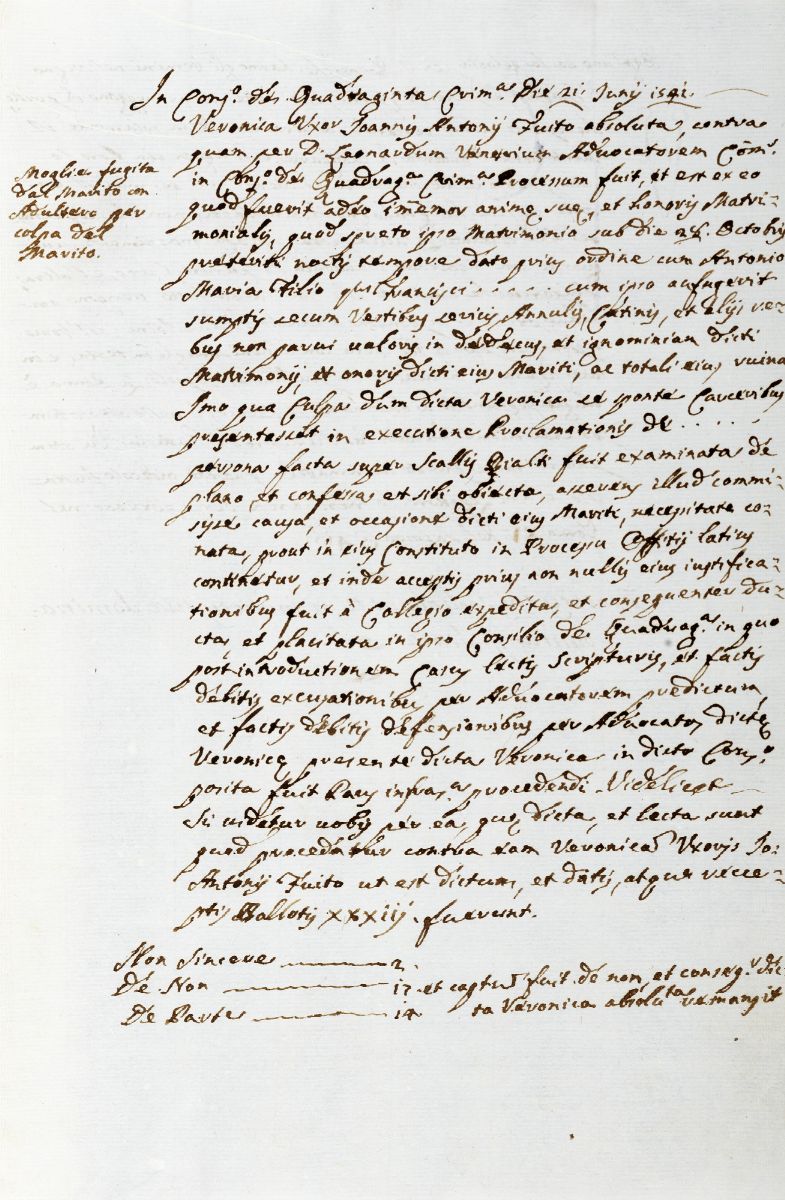 In Cons.º de Quadraginta Crim.ª Die 21. Junij 1591.
Veronica Uxor Joannis Antonij Fuito absoluta, contra
quam per D. Leonardum Venerium Advocatorem Com.s
in Cons.º de Quadrag.ª Crim.ª Processum fuit, et est ex eo
quod fuerit adeo immemor animę suę, et honoris Matri-
monialis, quod spreto ipso Matrimonio sub die 24. Octobris
preteriti noctis tempore dato prius ordine cum Antonio
Maria Filio Francisci . . . . . cum ipso aufugerit
sumptis secum Vestibus sericis Annulis, Catinis, et alijs re-
bus non parui ualoris in dedecus, et ignominiam dicti
Matrimonij, et onoris dicti eius Mariti, ac totali eius ruina
Imo qua Culpa dum dicta Veronica se sponte Carceribus
presentasset in executione Proclamationis de . . . . . .
persona facta super Scallis Rialti fuit examinata de
plano et confessa et sibi obiecta, asserens illud commi-
sisse causa, et occasione dicti eius Mariti, necessitate co-
nata, prout in eius Constituto in Processu Offitij latius
continetur, et inde acceptis prius non nullis eius iustifica-
tionibus fuit à Collegio expedita, et consequenter du-
cta, et placitata in ipso Consilio de Quadrag.ª in quo
post introductionem Casus lectis scripturis, et factis
debitis excusationibus per Advocatorem predictum,
et factis debitis defensionibus per Advocatos dictę
Veronicę presente dicta Veronica in dicto Cons.º
posita fuit Pars infras.ª procedendi Videlicet
Si uidetur uobis per ea, quę dicta, et lecta sunt
quod procedatur contra eam Veronica Uxoris Jo:
Antonij Fuito ut est dictum, et datis, atque rece-
ptis Ballotis XXXIIj. fuerunt.
Moglie fugita
dal Marito con
Adultero per
colpa del
Marito.
Non Sincere 2.
De Non 17. et captum fuit de non, et conseq.r dic-
De Parte 14 ta Veronica absoluta remansit